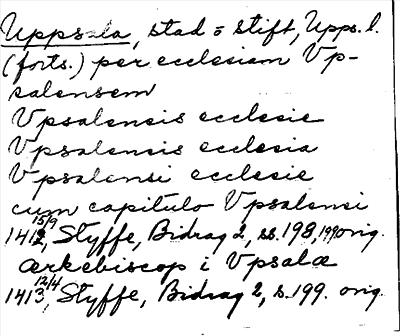 Uppsala, stad o stift, Upps. l.
(forts.) per ecclesiam Vp-
salensem
Vpsalensis ecclesie
Vpsalensis ecclesia
Vpsalensi ecclesie
cum capitulo Vpsalensi
1412 15/9, Styffe, Bidrag 2, ss. 198, 199 orig.
ærkebiscop i Vpsalæ
1413 12/4, Styffe, Bidrag 2, s. 199. orig.